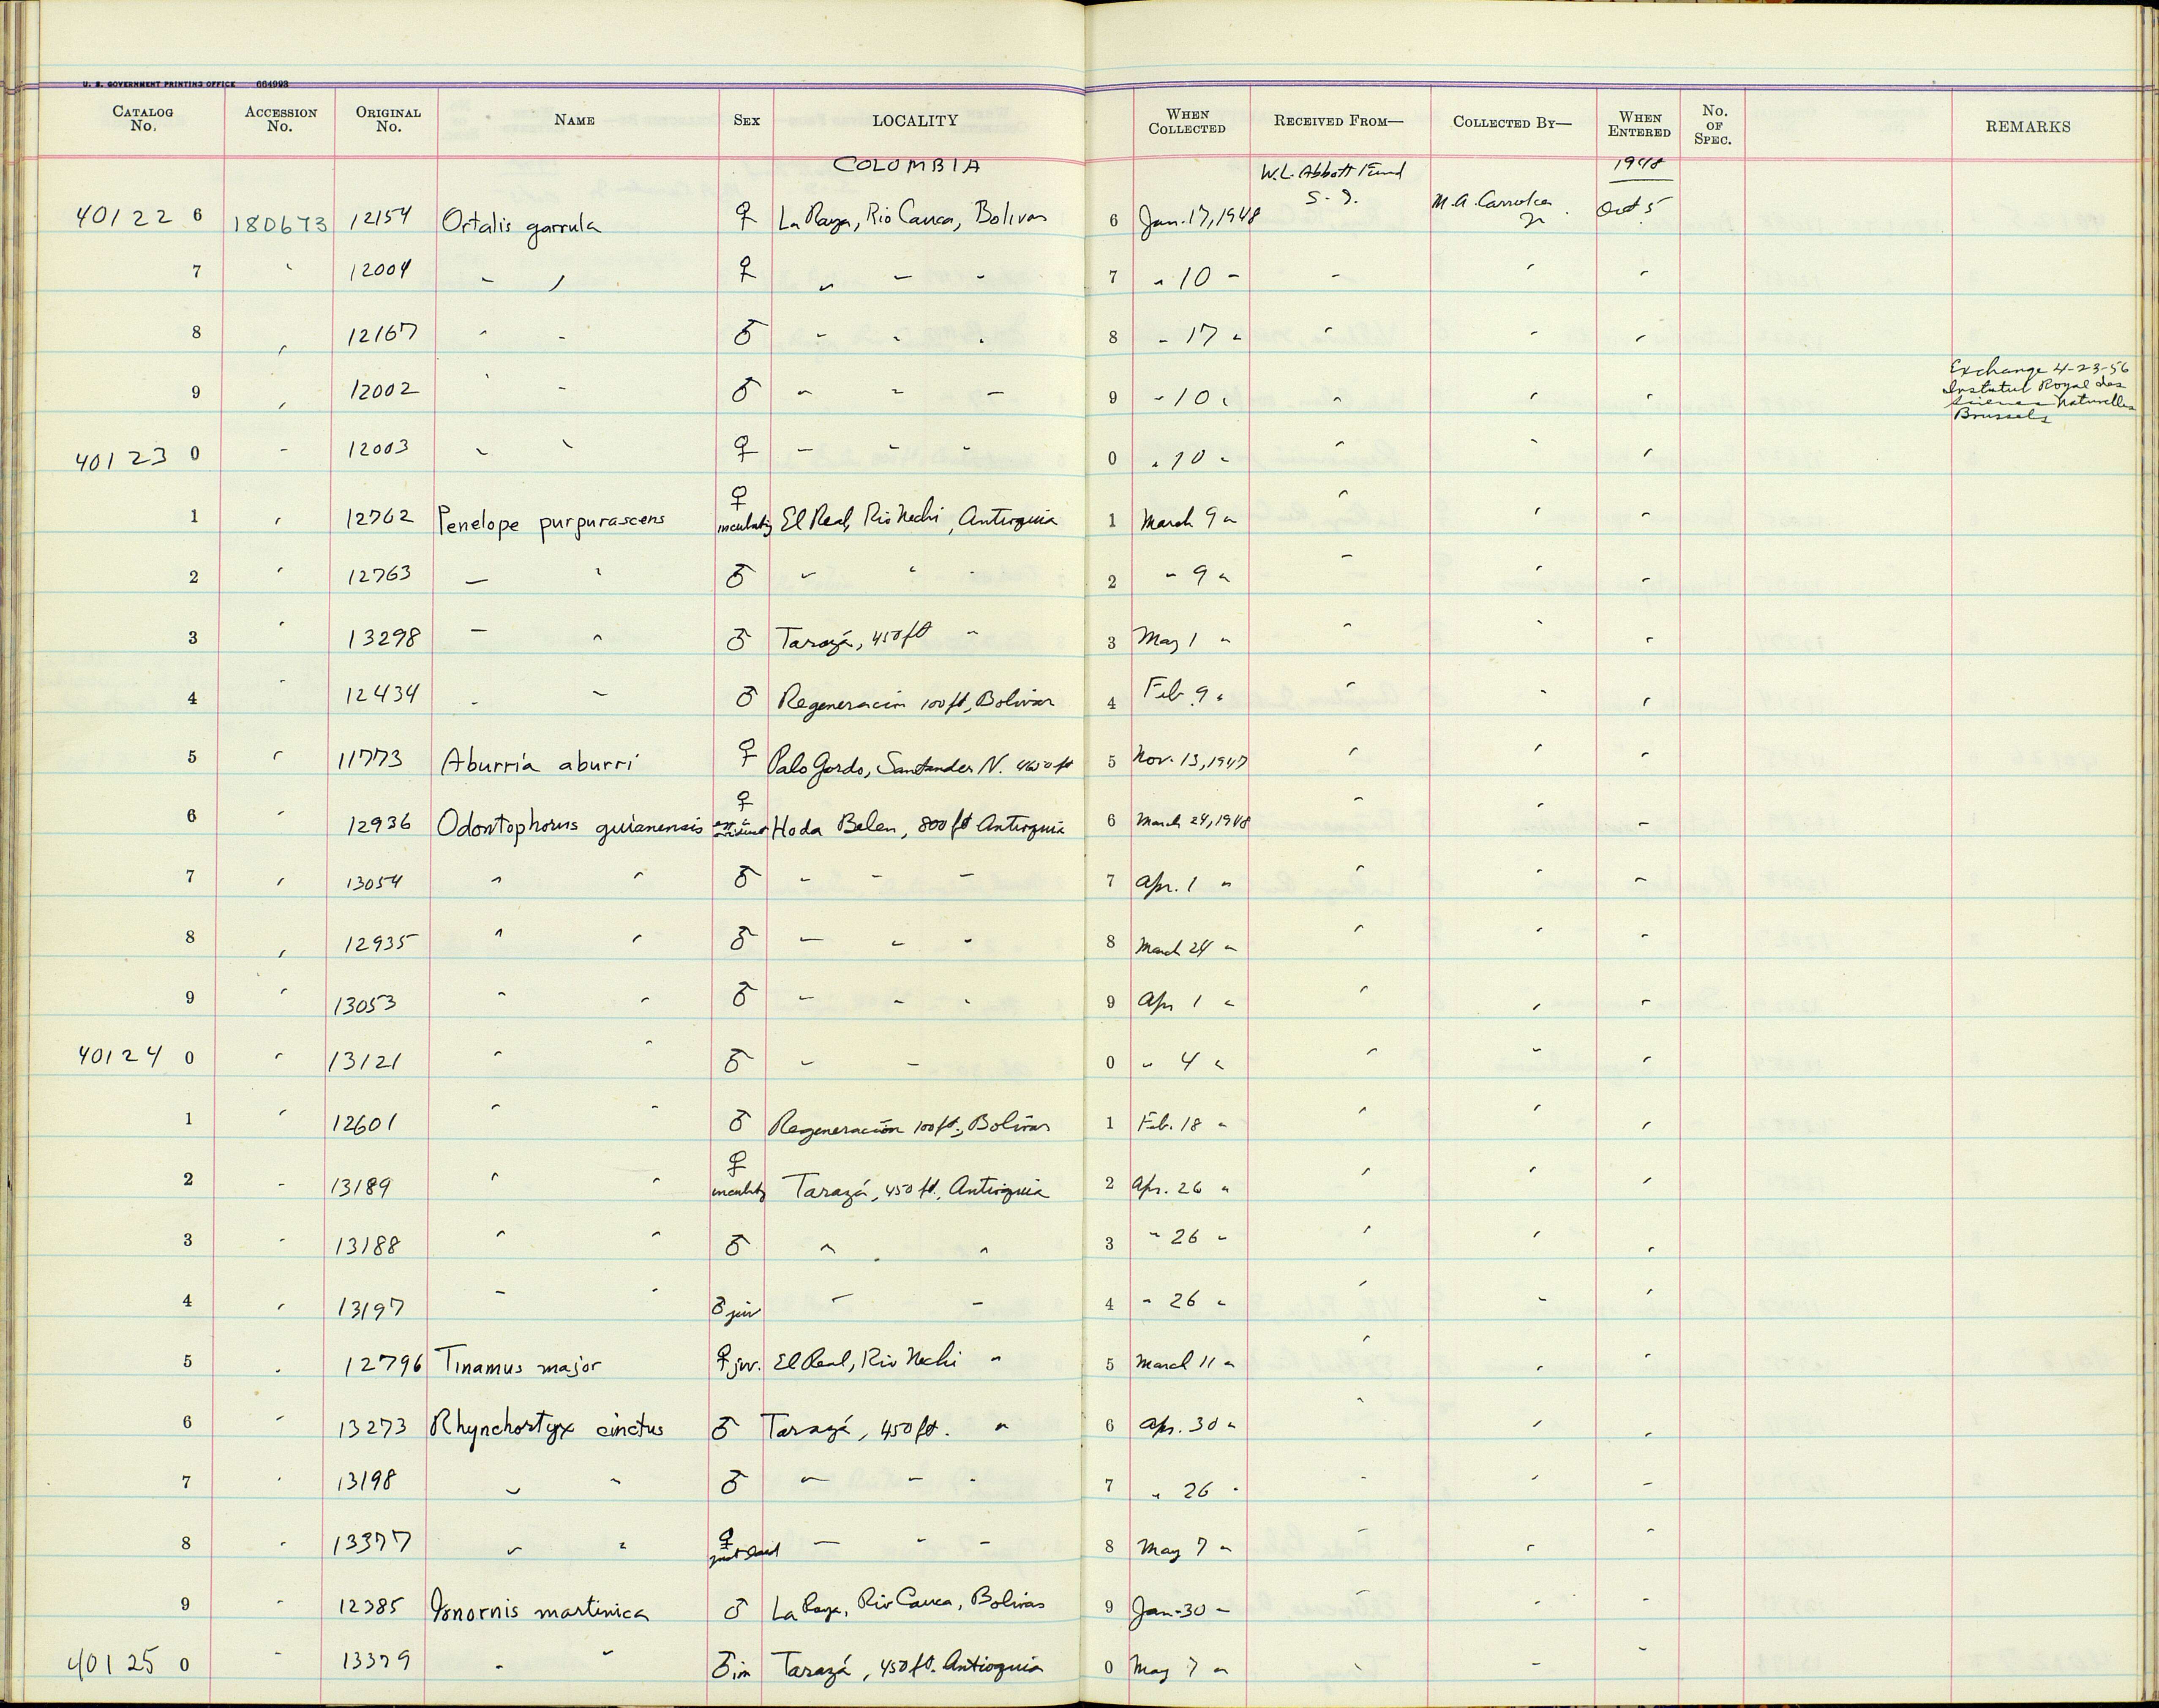 U. S. GOVERNMENT PRINTING OFFICE 664993
CATALOG No. ACCESSION No. ORIGINAL No. NAME SEX LOCALITY WHEN COLLECTED RECEIVED FROM— COLLECTED BY— WHEN ENTERED No. OF SPEC. REMARKS
COLOMBIA W.L. Abbott Fund S. I. 1948
40122 6 180673 12154 Ortalis garrula ♀ La Raya, Rio Cauca, Bolivar 6 Jan. 17, 1948 M.A. Carriker Jr. Oct 5
7 " 12004 " " ♀ " " " 7 " 10 " " " "
8 " 12167 " " ♂ " " " 8 " 17 " " " "
9 " 12002 " " ♂ " " " 9 " 10 " " " " Exchange 4-23-56 Institut Royal des Sciences Naturelles Brussels
40123 0 " 12003 " " ♀ " " " 0 " 10 " " " "
1 " 12762 Penelope purpurascens ♀ incubating El Real, Rio Nechi, Antioquia 1 March 9 " " " "
2 " 12763 " " ♂ " " " 2 " 9 " " " "
3 " 13298 " " ♂ Tarazá, 450 ft " 3 May 1 " " " "
4 " 12434 " " ♂ Regeneración 100 ft, Bolivar 4 Feb 9 " " " "
5 " 11773 Aburria aburri ♀ Palo Gordo, Santander N. 5 Nov. 13, 1947 " " "
6 " 12936 Odontophorus guianensis ♀ Hoda Belen, 800 ft Antioquia 6 March 24, 1948 " " "
7 " 13054 " " ♂ " " " 7 Apr. 1 " " " "
8 " 12935 " " ♂ " " " 8 March 24 " " " "
9 " 13053 " " ♂ " " " 9 Apr 1 " " " "
40124 0 " 13121 " " ♂ " " 0 " 4 " " " "
1 " 12601 " " ♂ Regeneración 100 ft., Bolivar 1 Feb. 18 " " " "
2 " 13189 " " ♀ incubating Tarazá, 450 ft., Antioquia 2 Apr. 26 " " " "
3 " 13188 " " ♂ " " 3 " 26 " " " "
4 " 13197 " " ♂ juv " " 4 " 26 " " " "
5 " 12796 Tinamus major ♀ juv. El Real, Rio Nechi " 5 March 11 " " " "
6 " 13273 Rhynchortyx cinctus ♂ Tarazá, 450 ft. " 6 Apr. 30 " " " "
7 " 13198 " " ♂ " " " 7 " 26 " " " "
8 " 13377 " " ♀ just laid " " " 8 May 7 " " " "
9 " 12385 Ionornis martinica ♂ La Raya, Rio Cauca, Bolivar 9 Jan. 30 " " " "
40125 0 " 13379 " " ♂ im Tarazá, 450 ft. Antioquia 0 May 7 " " " "